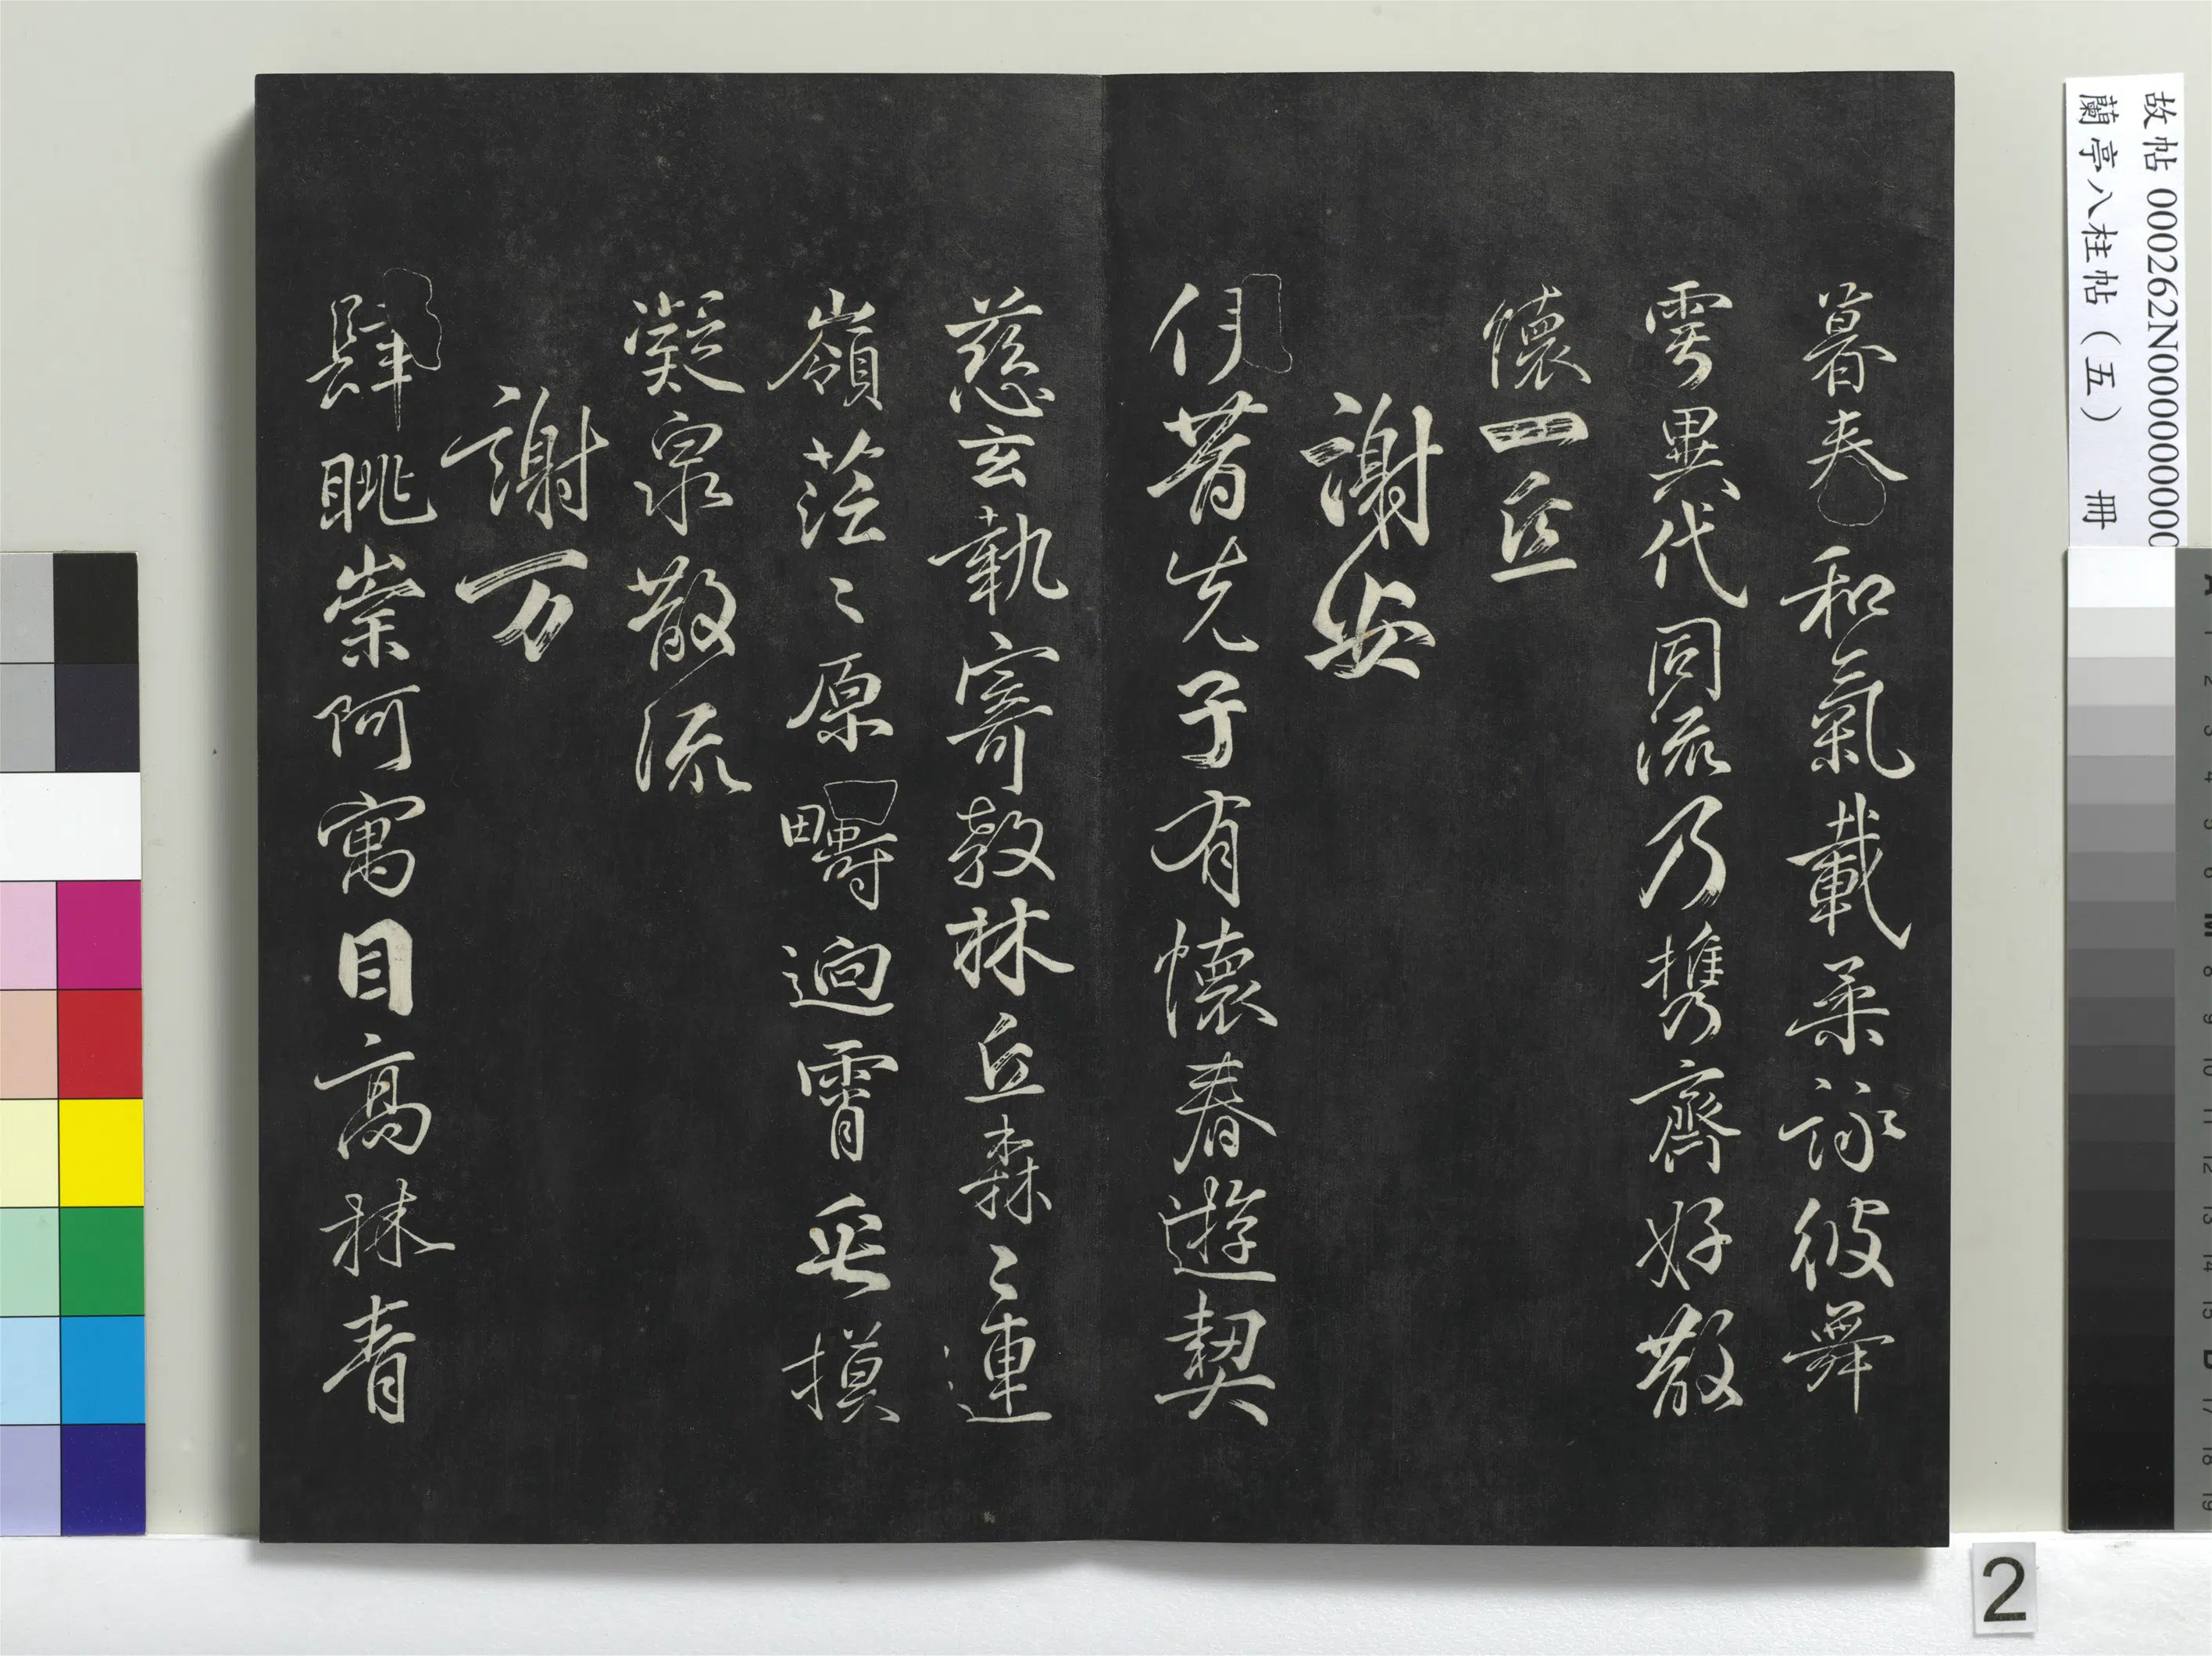 暮春和氣載柔詠彼舞
雩異代同流乃攜齊好散
懷一丘
謝安
伊昔先子有懷春遊契
茲玄執寄敖林丘森〻連
嶺茫〻原疇迥霄垂
凝泉散流
謝万
肆眺崇阿寓目高林青
故帖 000262N000000000
蘭亭八柱帖（五） 冊
2